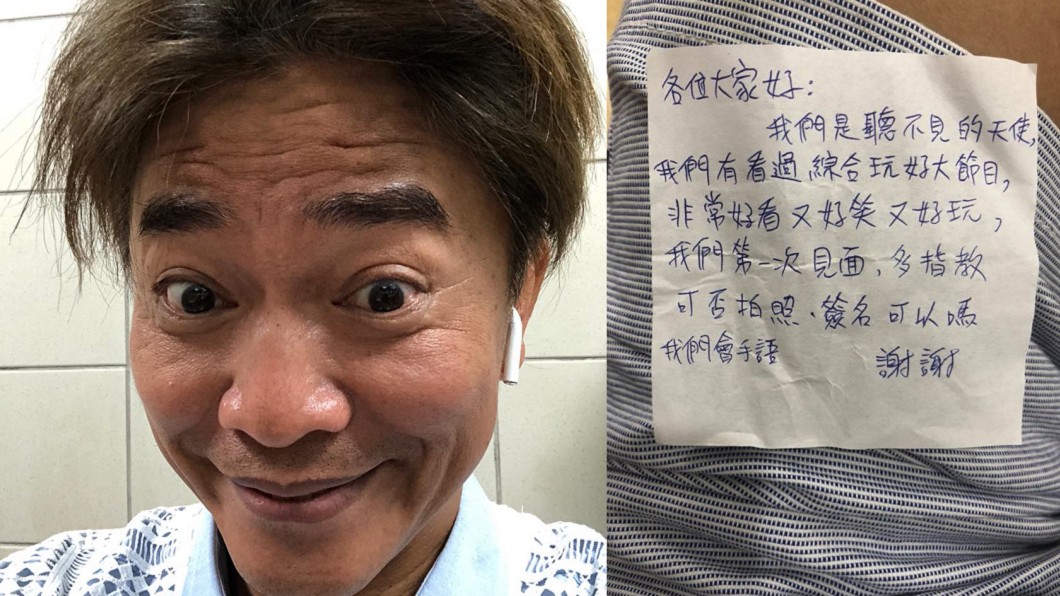 各位大家好：
我們是聽不見的天使，
我們有看過，綜合玩好大節目，
非常好看又好笑又好玩，
我們第一次見面，多指教
可否拍照、簽名可以嗎
我們會手語 謝謝